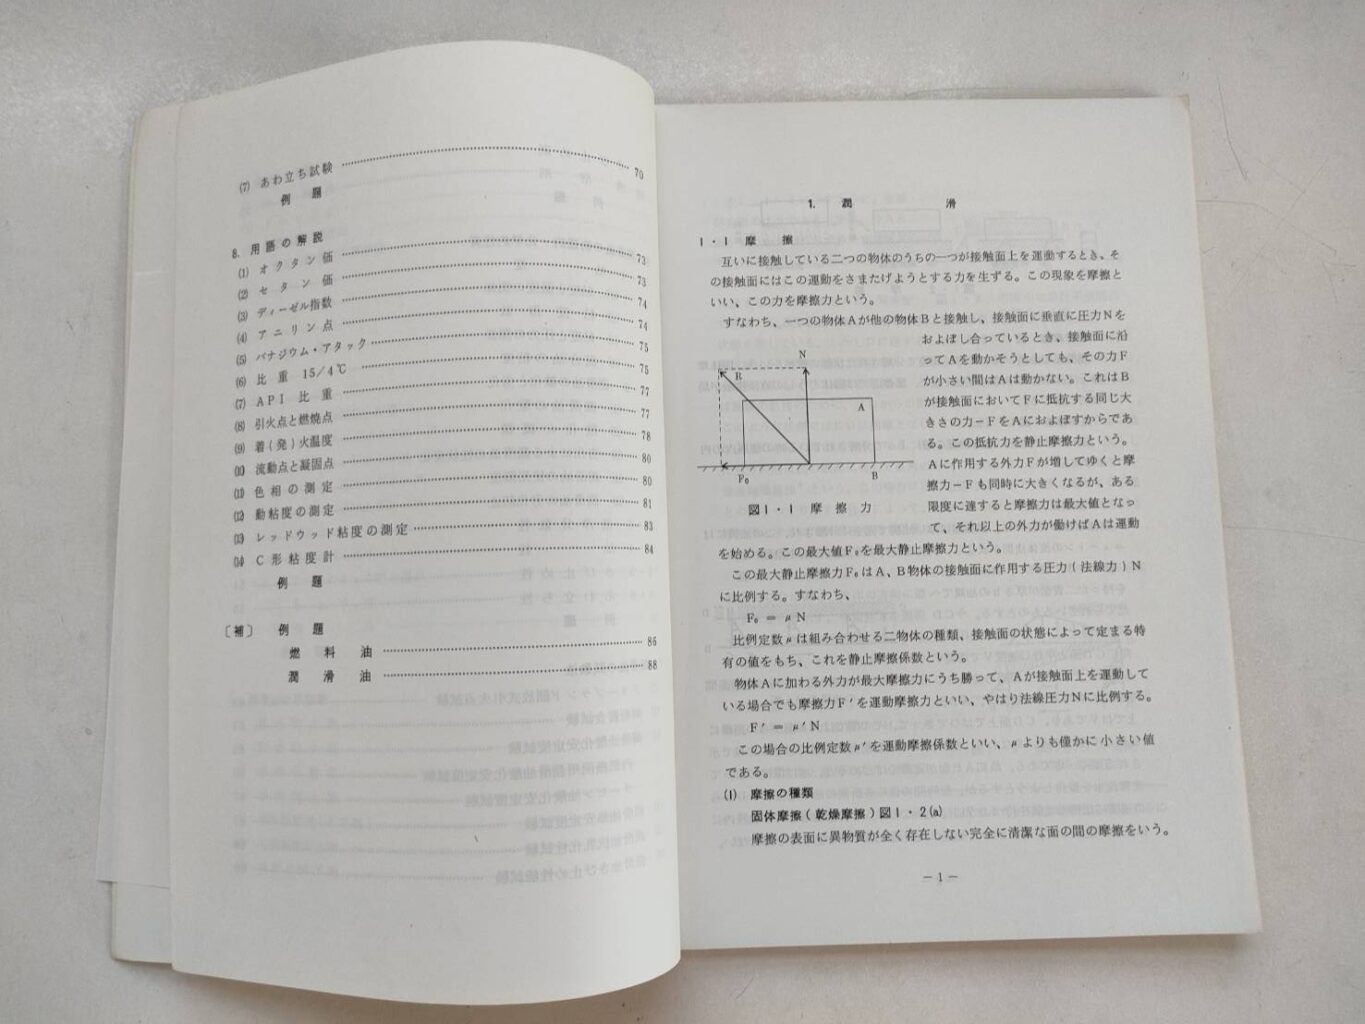 (7) あわ立ち試験 70
例題
8. 用語の解説
(1) オクタン価 73
(2) セタン価 73
(3) ディーゼル指数 74
(4) アニリン点 74
(5) バナジウム・アタック 75
(6) 比重 15/4℃ 75
(7) API比重 77
(8) 引火点と燃焼点 77
(9) 着(発)火温度 78
(10) 流動点と凝固点 80
(11) 色相の測定 80
(12) 動粘度の測定 81
(13) レッドウッド粘度の測定 83
(14) C形粘度計 84
例題
〔補〕 例題
燃料油 86
潤滑油 88
1. 潤滑
1・1 摩擦
互いに接触している二つの物体のうちの一つが接触面上を運動するとき、そ
の接触面にはこの運動をさまたげようとする力を生ずる。この現象を摩擦と
いい、この力を摩擦力という。
すなわち、一つの物体Aが他の物体Bと接触し、接触面に垂直に圧力Nを
およぼし合っているとき、接触面に沿
ってAを動かそうとしても、その力F
が小さい間はAは動かない。これはB
が接触面においてFに抵抗する同じ大
きさの力−FをAにおよぼすからであ
る。この抵抗力を静止摩擦力という。
Aに作用する外力Fが増してゆくと摩
擦力−Fも同時に大きくなるが、ある
限度に達すると摩擦力は最大値となっ
て、それ以上の外力が働けばAは運動
N
R
A
F₀
B
図1・1 摩擦力
を始める。この最大値F₀を最大静止摩擦力という。
この最大静止摩擦力F₀はA、B物体の接触面に作用する圧力(法線力)N
に比例する。すなわち、
F₀ = μN
比例定数μは組み合わせる二物体の種類、接触面の状態によって定まる特
有の値をもち、これを静止摩擦係数という。
物体Aに加わる外力が最大摩擦力にうち勝って、Aが接触面上を運動して
いる場合でも摩擦力F′を運動摩擦力といい、やはり法線圧力Nに比例する。
F′ = μ′N
この場合の比例定数μ′を運動摩擦係数といい、μよりも僅かに小さい値
である。
(1) 摩擦の種類
固体摩擦(乾燥摩擦)図1・2(a)
摩擦の表面に異物質が全く存在しない完全に清潔な面の間の摩擦をいう。
−1−